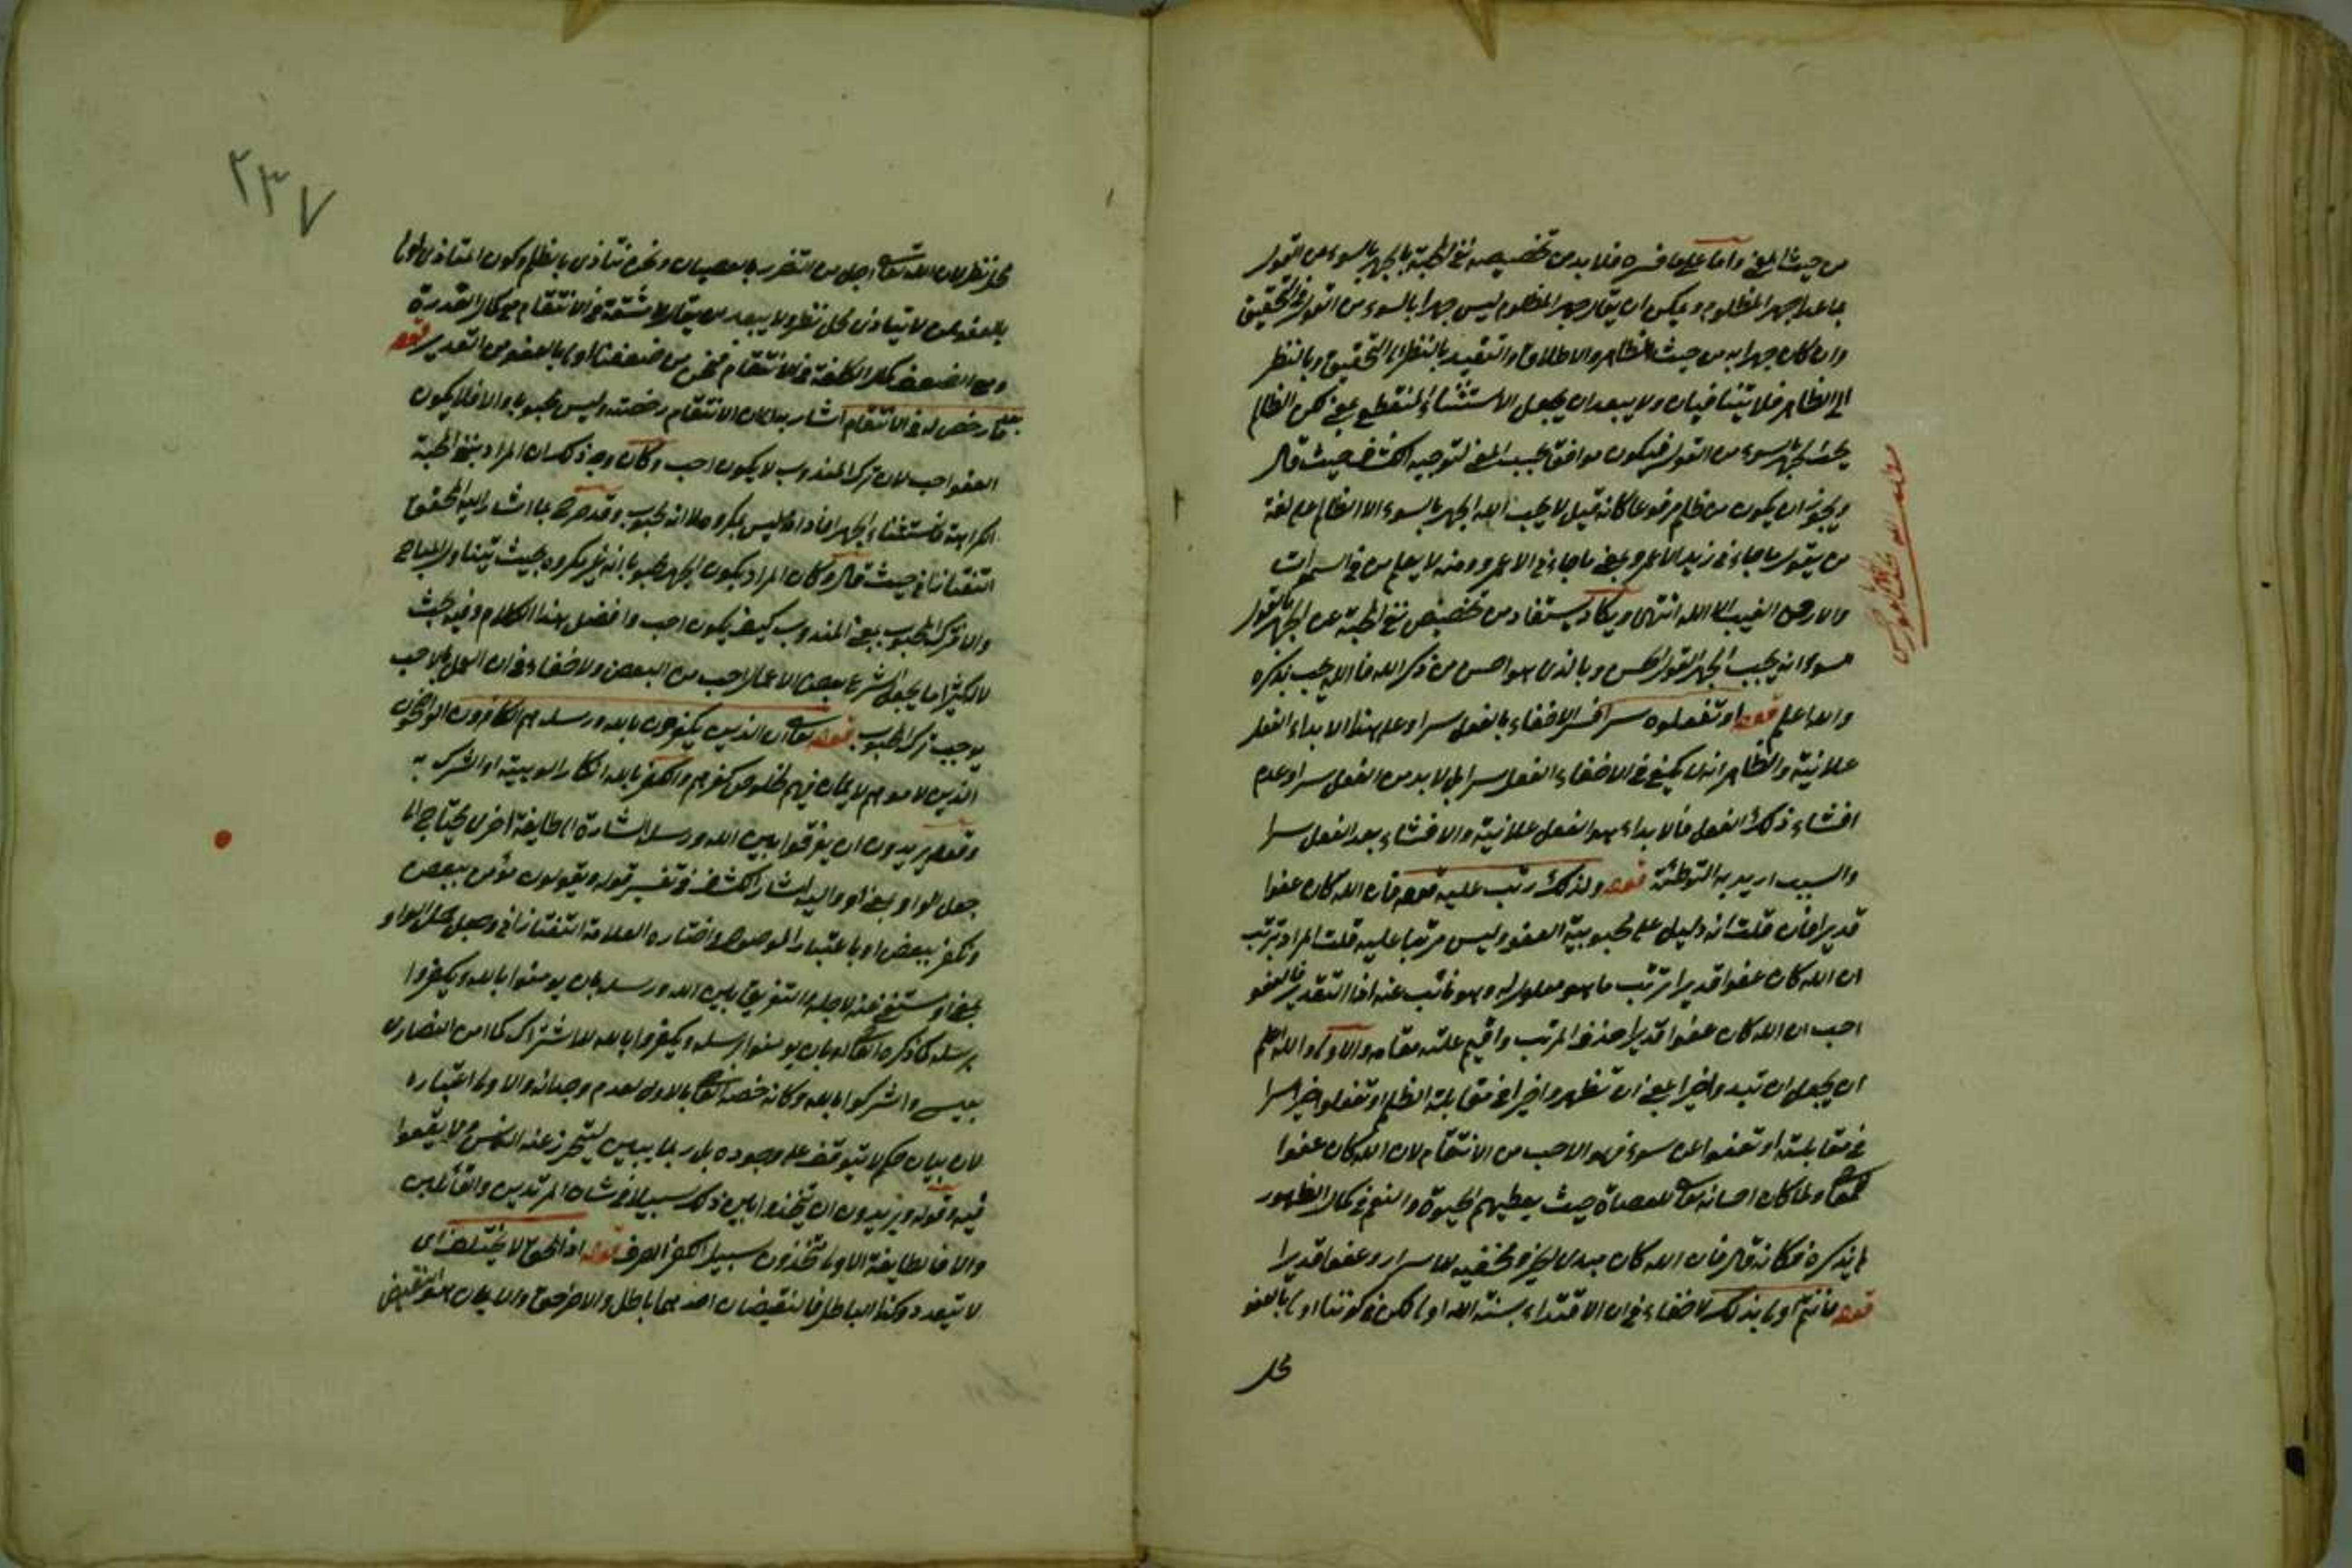 من حيث المعنى واما على ما فسره فلا بد من تخصيص نفي المحبة بالجهر بالسوء من القول
بما عدا جهر المظلوم ويمكن ان يقال جهر المظلوم ليس جهرا بالسوء من القول في التحقيق
وان كان جهرا به من حيث الظاهر والاطلاق والتقييد بالنظر الى التحقيق وبالنظر
الى الظاهر فلا يتنافيان ولا يبعد ان يجعل الاستثناء المنقطع بمعنى لكن الظالم
يحب الجهر بالسوء من القول فيكون موافقا بحسب المعنى لتوجيه الكشاف حيث قال
ويجوز ان يكون من ظلم مرفوعا كانه قيل لا يحب الله الجهر بالسوء الا الظالم على لغة
من يقول ما جاءني زيد الا عمرو بمعنى ما جاءني الا عمرو ومنه لا يعلم من في السموات
والارض الغيب الا الله انتهى ويكاد يستفاد من تخصيص نفي المحبة عن الجهر بالقول
السوء انه يحب الجهر القول الحسن وبالذي هو احسن من ذكر الله فالله يحب ذكره
والله اعلم قوله او تفعلوه سرا فسر الاخفاء بالفعل سرا وعلى هذا الابداء الفعل
علانية والظاهر انه لا يكفي في الاخفاء الفعل سرا بل لا بد من الفعل سرا وعدم
افشاء ذلك الفعل فالابداء هو الفعل علانية والافشاء بعد الفعل سرا
والسبب اريد به التوطئة قوله ولذلك رتب عليه قوله فان الله كان عفوا
قديرا فان قلت انه دليل على محبوبية العفو وليس مرتبا عليه قلت المراد ترتب
ان الله كان عفوا قديرا ترتب ما هو معلول له وهو نائب عنه اذا التقدير فالعفو
احب ان الله كان عفوا قديرا حذف المرتب واقيم علته مقامه والاولى والله اعلم
ان يجعل ان تبدوا خيرا بمعنى ان تظهروا خيرا في مقابلة الظلم او تفعلوا خيرا سرا
في مقابلته او تعفوا عن سوء فهو الاحب من الانتقام لان الله كان عفوا
ولما كان احسانه تعالى للعصاة حيث يعطيهم الحيوة والنعم في كمال الظهور
لم يذكره فكانه قال فان الله كان مبدي الخير ومخفيه للاسرار وعفوا قديرا
قوله فانتم اولى بذلك لا خفاء في ان الاقتداء بسنة الله اولى لكن في كوننا اولى بالعفو
محل
٢٣٧
محل نظر لان الله تعالى اجل من التضرر بالعصيان ونحن نتاذى بالظلم وكون المتاذي اولى
بالعفو ممن لا يتاذى محل نظر ولا يبعد ان يقال لا مشقة في الانتقام مع كمال القدرة
ومع الضعف كمال الكلفة في الانتقام فنحن من ضعفنا اولى بالعفو من القدير قوله
بعد ما رخص له في الانتقام اشار به الى ان الانتقام رخصة وليس بمحبوب والا فلا يكون
العفو احب لان ترك المندوب لا يكون احب وكان وجه ذلك ان المراد بنفي المحبة
الكراهة فاستثناء الجهر افاد انه ليس بمكروه لا انه محبوب وقد صرح بما اشار اليه المحقق
التفتازاني حيث قال وكان المراد بكون الجهر محبوبا انه غير مكروه بحيث يتناول المباح
والا فترك المحبوب بمعنى المندوب كيف يكون احب وافضل هذا الكلام وفيه بحث
لان كثيرا ما يجعل الشرع بعض الاعمال احب من البعض ولا خفاء في ان العمل بالاحب
يوجب ترك المحبوب قوله تعالى ان الذين يكفرون بالله ورسله هم الكافرون
الذين لا موهم لايمان فيهم لخلوص كفرهم والكفر بالله انكار الربوبية او الشرك به
وقوله يريدون ان يفرقوا بين الله ورسله اشارة الى طايفة اخرى يحتاج الى
جعل الواو بمعنى او واليه اشار الكشاف في تفسير قوله ويقولون نؤمن ببعض
ونكفر ببعض او باعتبار الموصول واختاره العلامة التفتازاني وجعل الواو
بمعنى او مستغنى عنه لاجله والتفريق بين الله ورسله بان يومنوا بالله ويكفروا
برسله كما ذكره القاضي او بان يومنوا برسله ويكفروا بالله للاشتراك كما من النصارى
بعيسى واشركوا بالله وكانه خصه القاضي بالاول لعدم وجدانه والاولى اعتباره
لان بيان حكم لا يتوقف على وجوده بل ربما يبين ليتحرز عنه الناس ولا يقعوا
فيه وقوله ويريدون ان يتخذوا بين ذلك سبيلا في شان المرتدين والقائلين
والا فالطايفة الاولى يتخذون سبيل الكفر الصرف قوله اذ الحق لا يختلف اي
لا يتعدد وكذا الباطل فالنقيضان احدهما باطل والاخر حق والايمان هو النقيض